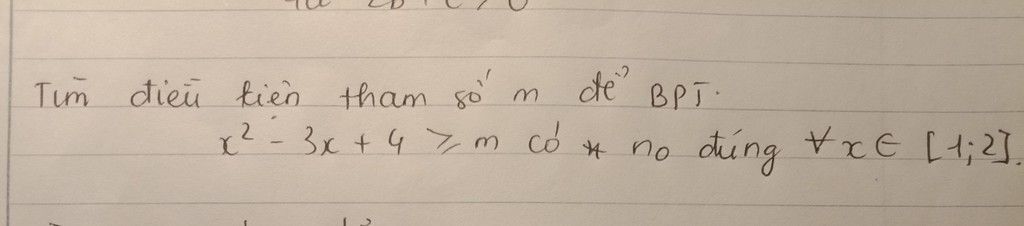 Tìm điều kiện tham số m để BPT.
x² - 3x + 4 ≥ m có no đúng ∀x ∈ [1;2].